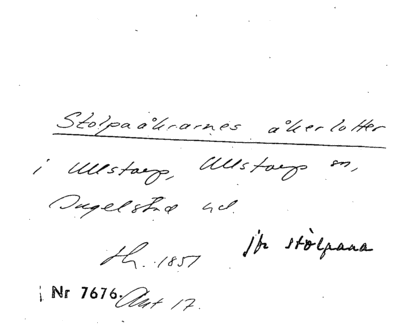 Stolpaåkrarnes åkerlotter
i Ullstorp, Ullstorp sn,
Ingelstad hd.
jfr stolpana
1851
Nr 7676. Akt 17.